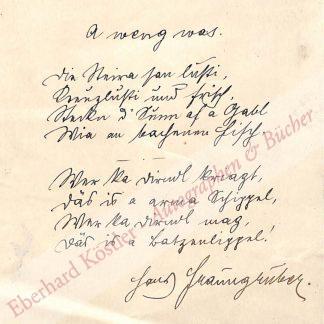 A weng was.
Die Steira san lusti,
Kreuzlusti und frisch,
Stecken d' Sunn af a Gabl
Wia an bachenen Fisch.
Wer ka Dirndl kriagt,
Däs is a arma Schippel,
Wer ka Dirndl mag,
Däs is a Batzenlippel!
Hans Fraungruber.
Eberhard Köstler Autographen & Bücher